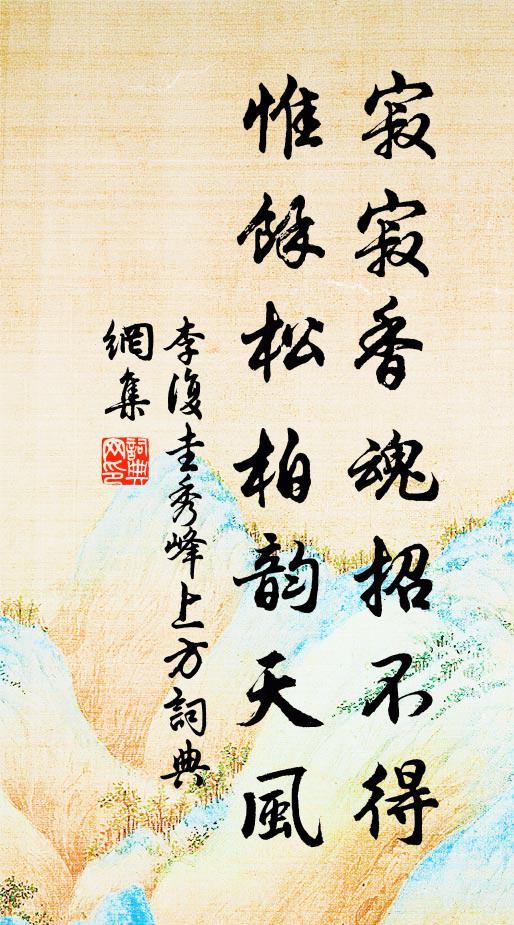 寂寂香魂招不得
惟餘松柏韵天風
李復圭秀峰上方詞典
網集
詞典網印